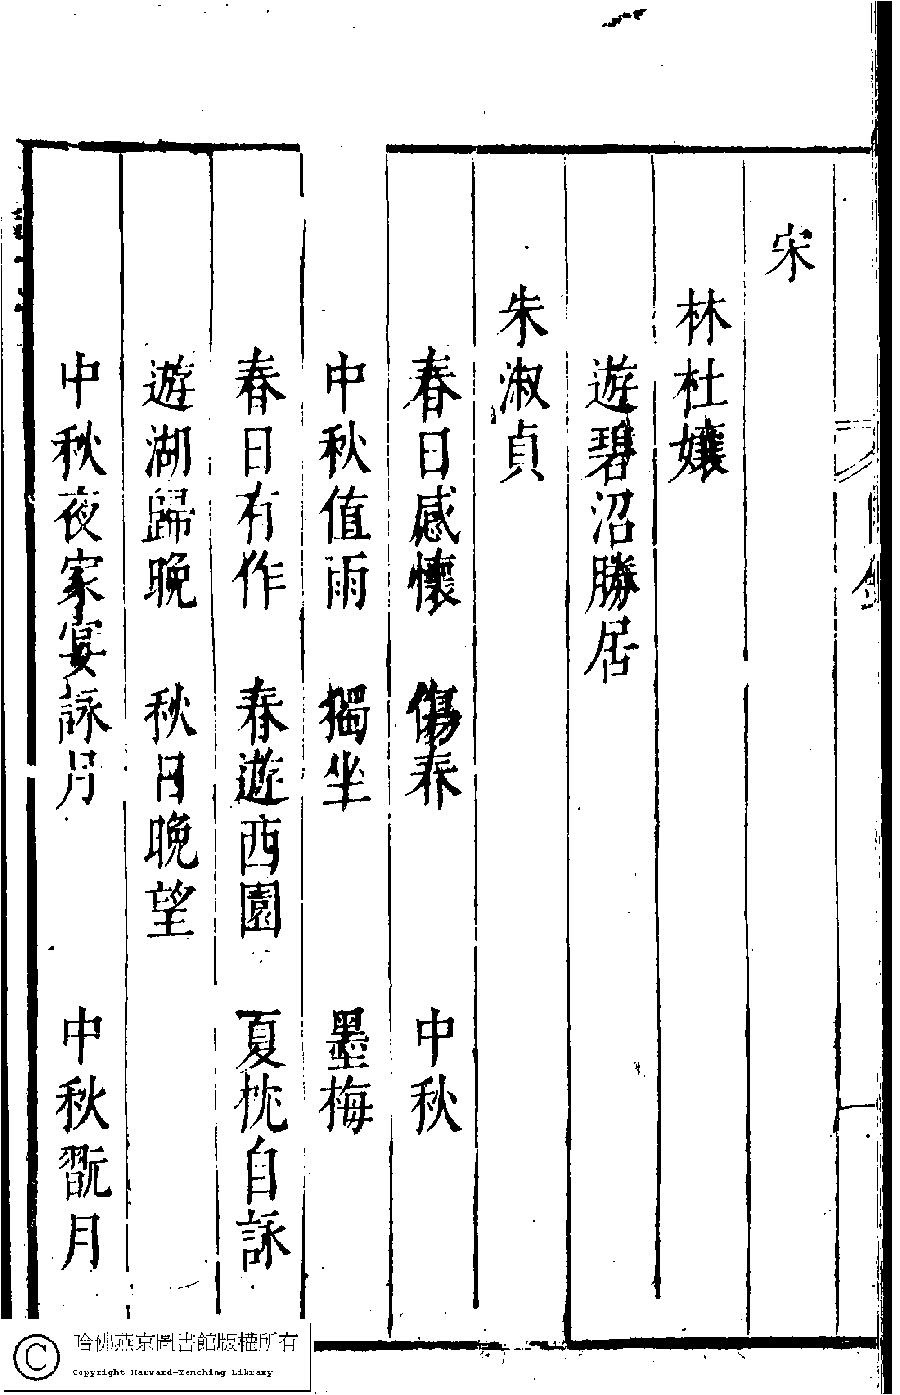 宋
林杜孃
遊碧沼勝居
朱淑貞
春日感懷　傷春　中秋
中秋值雨　獨坐　墨梅
春日有作　春遊西園　夏枕自詠
遊湖歸晚　秋日晚望
中秋夜家宴詠月　中秋翫月
哈佛燕京圖書館版權所有
Copyright Harvard-Yenching Library